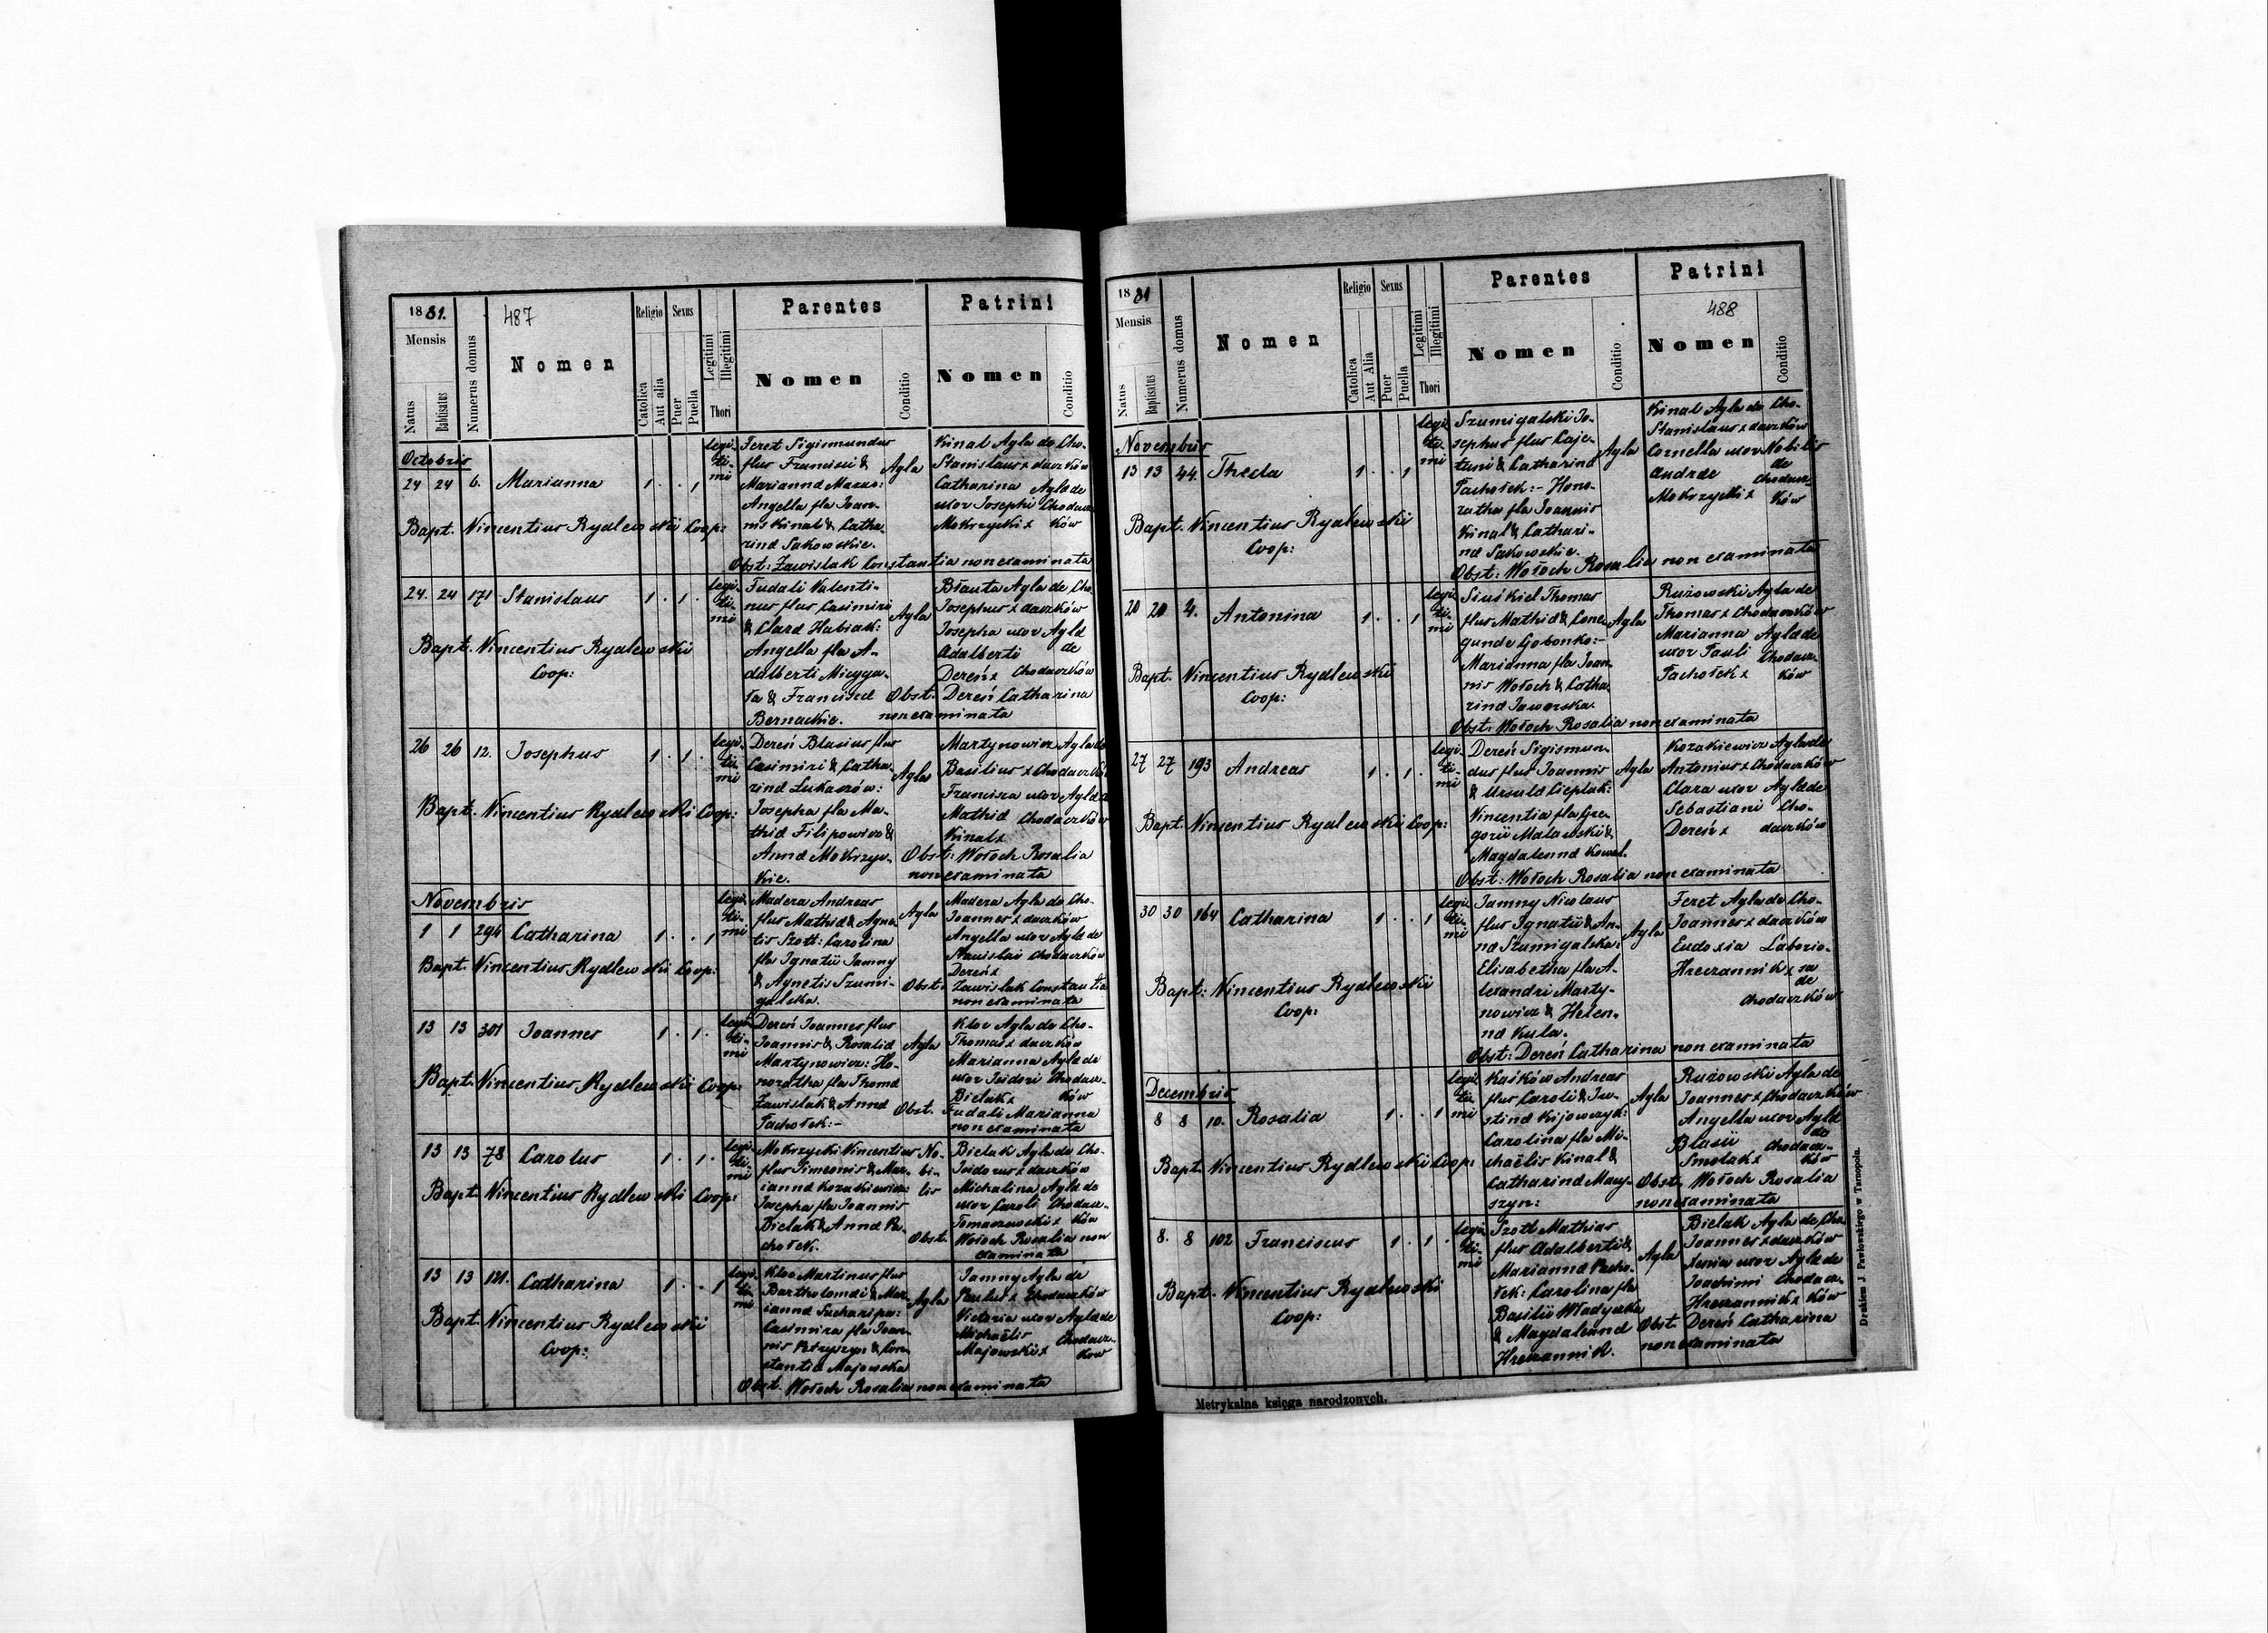 1881.
487
Mensis
Natus
Babtisatus
Numerus domus
Nomen
Religio
Catolica
Aut alia
Sexus
Puer
Puella
Legitimi
Illegitimi
Thori
Parentes
Nomen
Conditio
Patrini
Nomen
Conditio
Octobris
24 24 6. Marianna 1 . . 1
legi-
ti-
mi
Feret Sigismundus
flius Francisci &
Marianna Mazur:
Angella fla Joan-
nis Kinal & Catha-
rina Sakowskie.
Agla
Kinal Agla de Cho-
Stanislaus x daczków
Catharina Agla de
uxor Josephi Chodacz
Mokrzycki x ków
Bapt. Vincentius Rydlewski Coop:
Obst: Zawislak Constantia non examinata
24. 24 171 Stanislaus 1 . 1 .
legi-
ti-
mi
Fudali Valenti-
nus flus Casimiri
& Clara Habiak:
Angella fla A-
dalberti Miezga-
ła & Francisca
Bernackie.
Agla
Błauta Agla de Cho
Josephus x daczków
Josepha uxor Agla
Adalberti de
Dereń x Chodaczków
Bapt. Vincentius Rydlewski
Coop:
Obst. Dereń Catharina
non examinata
26 26 12. Josephus 1 . 1 .
legi-
ti-
mi
Dereń Blasius flus
Casimiri & Catha-
rina Łukaszów:
Josepha fla Ma-
thia Filipowicz &
Anna Mokrzyc-
kie.
Agla
Martynowicz Agla de
Basilius x Chodaczków
Francisca uxor Agla
Mathia Chodaczków
Kinal x
Bapt. Vincentius Rydlewski Coop:
Obst: Wołoch Rosalia
non examinata
Novembris
1 1 294 Catharina 1 . . 1
legi-
ti-
mi
Madera Andreas
flus Mathia & Agne-
tis Szott: Carolina
fla Ignatii Jamny
& Agnetis Szumi-
galska.
Agla
Madera Agla de Cho-
Joannes x daczków
Angella uxor Agla de
Stanislai Chodaczków
Dereń x
Bapt. Vincentius Rydlewski Coop:
Obst: Zawislak Constantia
non examinata
13 13 301 Joannes 1 . 1 .
legi-
ti-
mi
Dereń Joannes flus
Joannis & Rosalia
Martynowicz: Ho-
noratha fla Thoma
Zawislak & Anna
Pachołek:-
Agla
Kloc Agla de Cho-
Thomas x daczków
Marianna Agla de
uxor Isidori Chodacz-
Bielak x ków
Bapt. Vincentius Rydlewski Coop:
Obst. Fudali Marianna
non examinata
13 13 78 Carolus 1 . 1 .
legi-
ti-
mi
Mokrzycki Vincentius
flus Simeonis & Mar-
ianna Kozakiewicz:
Josepha fla Joannis
Bielak & Anna Pa-
chołek.
No-
bi-
lis
Bielak Agla de Cho-
Isidorus x daczków
Michalina Agla de
uxor Caroli Chodacz-
Tomaszewski x ków
Bapt. Vincentius Rydlewski Coop:
Obst. Wołoch Rosalia non
examinata
13 13 121. Catharina 1 . . 1
legi-
ti-
mi
Kloc Martinus flus
Bartholomai & Mar-
ianna Sucharipa:
Casimira fla Joan-
nis Petryszyn & Con-
stantia Majowska
Agla
Jamny Agla de
Paulus x Chodaczków
Victoria uxor Agla de
Michaëlis Chodacz-
Majowski x ków
Bapt. Vincentius Rydlewski
Coop:
Obst. Wołoch Rosalia non examinata
1881
488
Mensis
Natus
Baptisatus
Numerus domus
Nomen
Religio
Catolica
Aut Alia
Sexus
Puer
Puella
Legitimi
Illegitimi
Thori
Parentes
Nomen
Conditio
Patrini
Nomen
Conditio
Novembris
13 13 44. Thecla 1 . . 1
legi-
ti-
mi
Szumigalski Jo-
sephus flus Caje-
tani & Catharina
Pachołek:- Hono-
ratha fla Joannis
Kinal & Cathari-
na Sakowskie.
Agla
Kinal Agla de Cho-
Stanislaus x daczków
Cornelia uxor Nobilis
Andrea de
Mokrzycki x Chodacz-
ków
Bapt. Vincentius Rydlewski
Coop:
Obst: Wołoch Rosalia non examinata
20 20 4. Antonina 1 . . 1
legi-
ti-
mi
Siuśkiel Thomas
flus Mathia & Cune-
gunda Gobonko:-
Marianna fla Joan-
nis Wołoch & Catha-
rina Jaworska.
Agla
Rużowski Agla de
Thomas x Chodaczków
Marianna Agla de
uxor Pauli Chodacz-
Pachołek x ków
Bapt. Vincentius Rydlewski
Coop:
Obst: Wołoch Rosalia non examinata
27 27 193 Andreas 1 . 1 .
legi-
ti-
mi
Dereń Sigismun-
dus flus Joannis
& Ursula Cieplak:
Vincentia fla Gre-
gorii Malawski &
Magdalenna Kowal.
Agla
Kozakiewicz Agla de
Antonius x Chodaczków
Clara uxor Agla de
Sebastiani Cho-
Dereń x daczków
Bapt. Vincentius Rydlewski Coop:
Obst: Wołoch Rosalia non examinata
30 30 164 Catharina 1 . . 1
legi-
ti-
mi
Jamny Nicolaus
flus Ignatii & An-
na Szumigalska:
Elisabetha fla A-
lexandri Marty-
nowicz & Helen-
na Kula.
Agla
Feret Agla de Cho-
Joannes x daczków
Eudoxia Laborio-
Hreczannik x sa
de
Chodaczków
Bapt: Vincentius Rydlewski
Coop:
Obst: Dereń Catharina non examinata
Decembris
8 8 10. Rosalia 1 . . 1
legi-
ti-
mi
Kaśków Andreas
flus Caroli & Ju-
stina Kijowczyk:
Carolina fla Mi-
chaëlis Kinal &
Catharina Macy-
szyn:
Agla
Rużowski Agla de
Joannes x Chodaczków
Angella uxor Agla
Blasii de
Smolak x Chodacz-
ków
Bapt. Vincentius Rydlewski Coop:
Obst. Wołoch Rosalia
non examinata
8. 8 102 Franciscus 1 . 1 .
legi-
ti-
mi
Szott Mathias
flus Adalberti &
Marianna Pacho-
łek: Carolina fla
Basilii Władyczka
& Magdalenna
Hreczannik.
Agla
Bielak Agla de Cho
Joannes x daczków
Xenia uxor Agla de
Joachimi Chodacz-
Hreczannik x ków
Bapt. Vincentius Rydlewski
Coop:
Obst. Dereń Catharina
non examinata
Metrykalna księga narodzonych.
Drukiem J. Pawłowskiego w Tarnopolu.